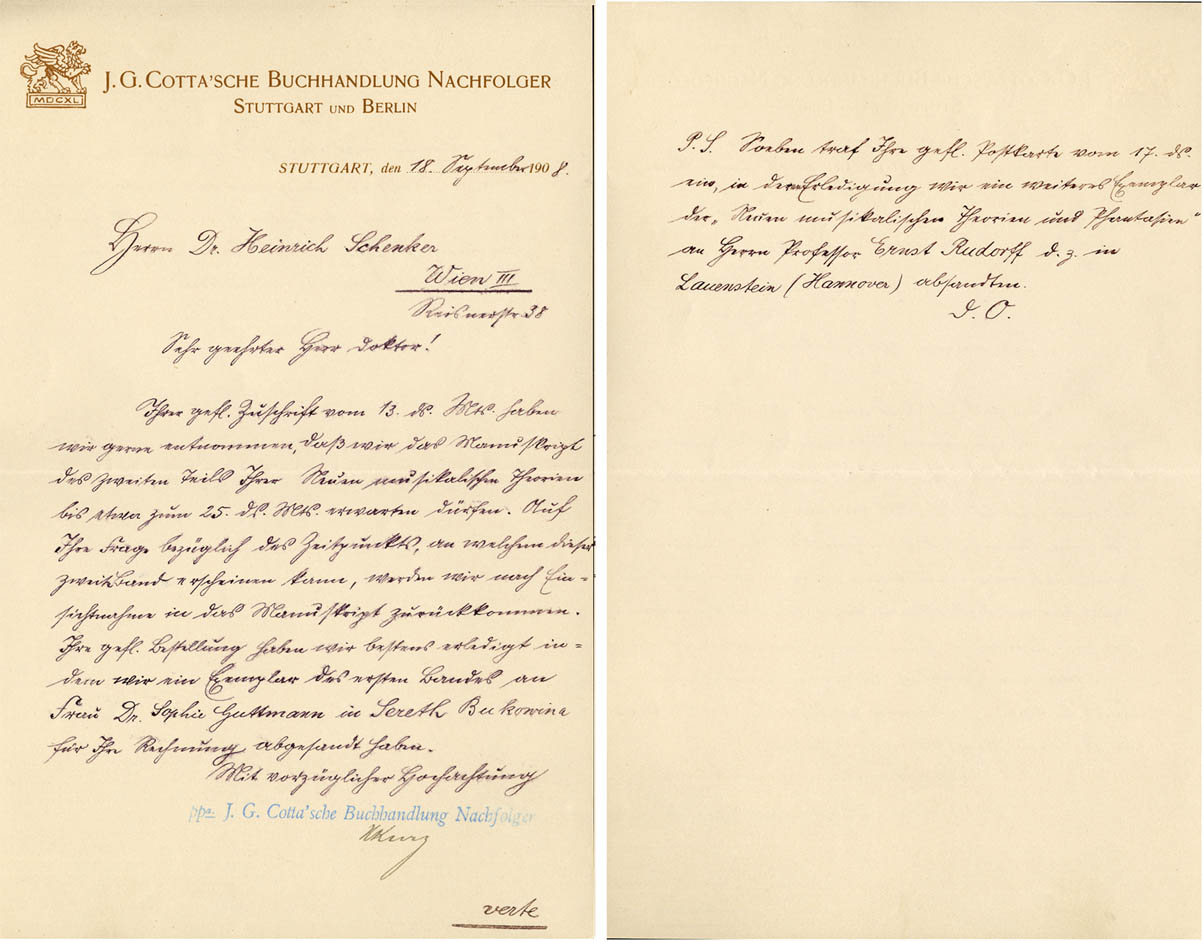 MDCXL
J. G. COTTA'SCHE BUCHHANDLUNG NACHFOLGER
STUTTGART UND BERLIN
STUTTGART, den 18. September 1908.
Herrn Dr. Heinrich Schenker
Wien III
Reisnerstr. 38
Sehr geehrter Herr Doktor!
Ihrer gefl. Zuschrift vom 13. ds. Mts. haben
wir gerne entnommen, daß wir das Manuskript
des zweiten Teils Ihrer Neuen musikalischen Theorien
bis etwa zum 25. ds. Mts. erwarten dürfen. Auf
Ihre Frage bezüglich des Zeitpunkts, an welchem dieser
zweite Band erscheinen kann, werden wir nach Ein=
sichtnahme in das Manuskript zurückkommen.
Ihre gefl. Bestellung haben wir bestens erledigt in=
dem wir ein Exemplar des ersten Bandes an
Frau Dr. Sophie Guttmann in Sereth Bukowina
für Ihre Rechnung abgesandt haben.
Mit vorzüglicher Hochachtung
ppa. J. G. Cotta'sche Buchhandlung Nachfolger
verte
P. S. Soeben traf Ihre gefl. Postkarte vom 17. ds.
ein, in deren Erledigung wir ein weiteres Exemplar
der „Neuen musikalischen Theorien und Phantasien"
an Herrn Professor Ernst Rudorff d. z. in
Lauenstein (Hannover) absandten.
D. O.